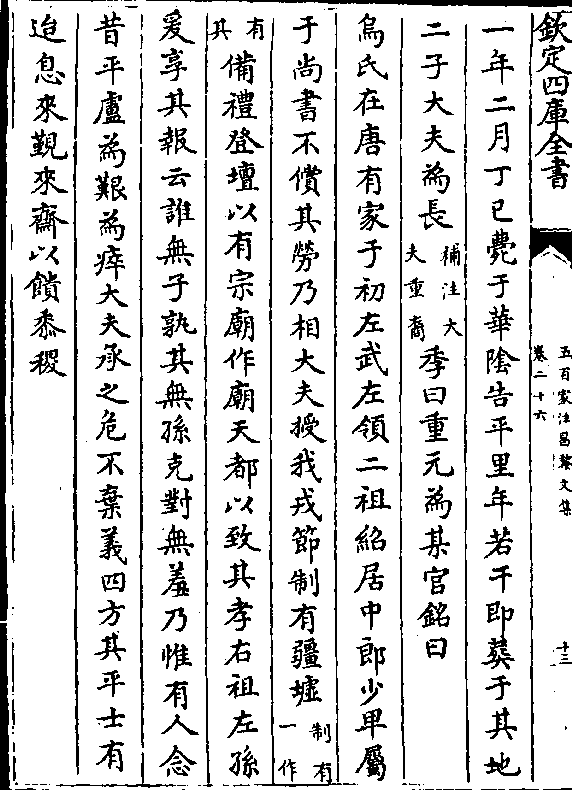 欽定四庫全書
五百家注昌黎文集
卷二十六
十三
一年二月丁巳薨于華陰告平里年若干即葬于其地
二子大夫為長補注大夫重裔季曰重元為某官銘曰
烏氏在唐有家于初左武左領二祖紹居中郎少卑屬
于尚書不償其勞乃相大夫授我戎節制有疆墟制有一作
有其備禮登壇以有宗廟作廟天都以致其孝右祖左孫
爰享其報云誰無子孰其無孫克對無羞乃惟有人念
昔平盧為艱為瘁大夫承之危不棄義四方其平士有
迨息來覲來齋以饋黍稷